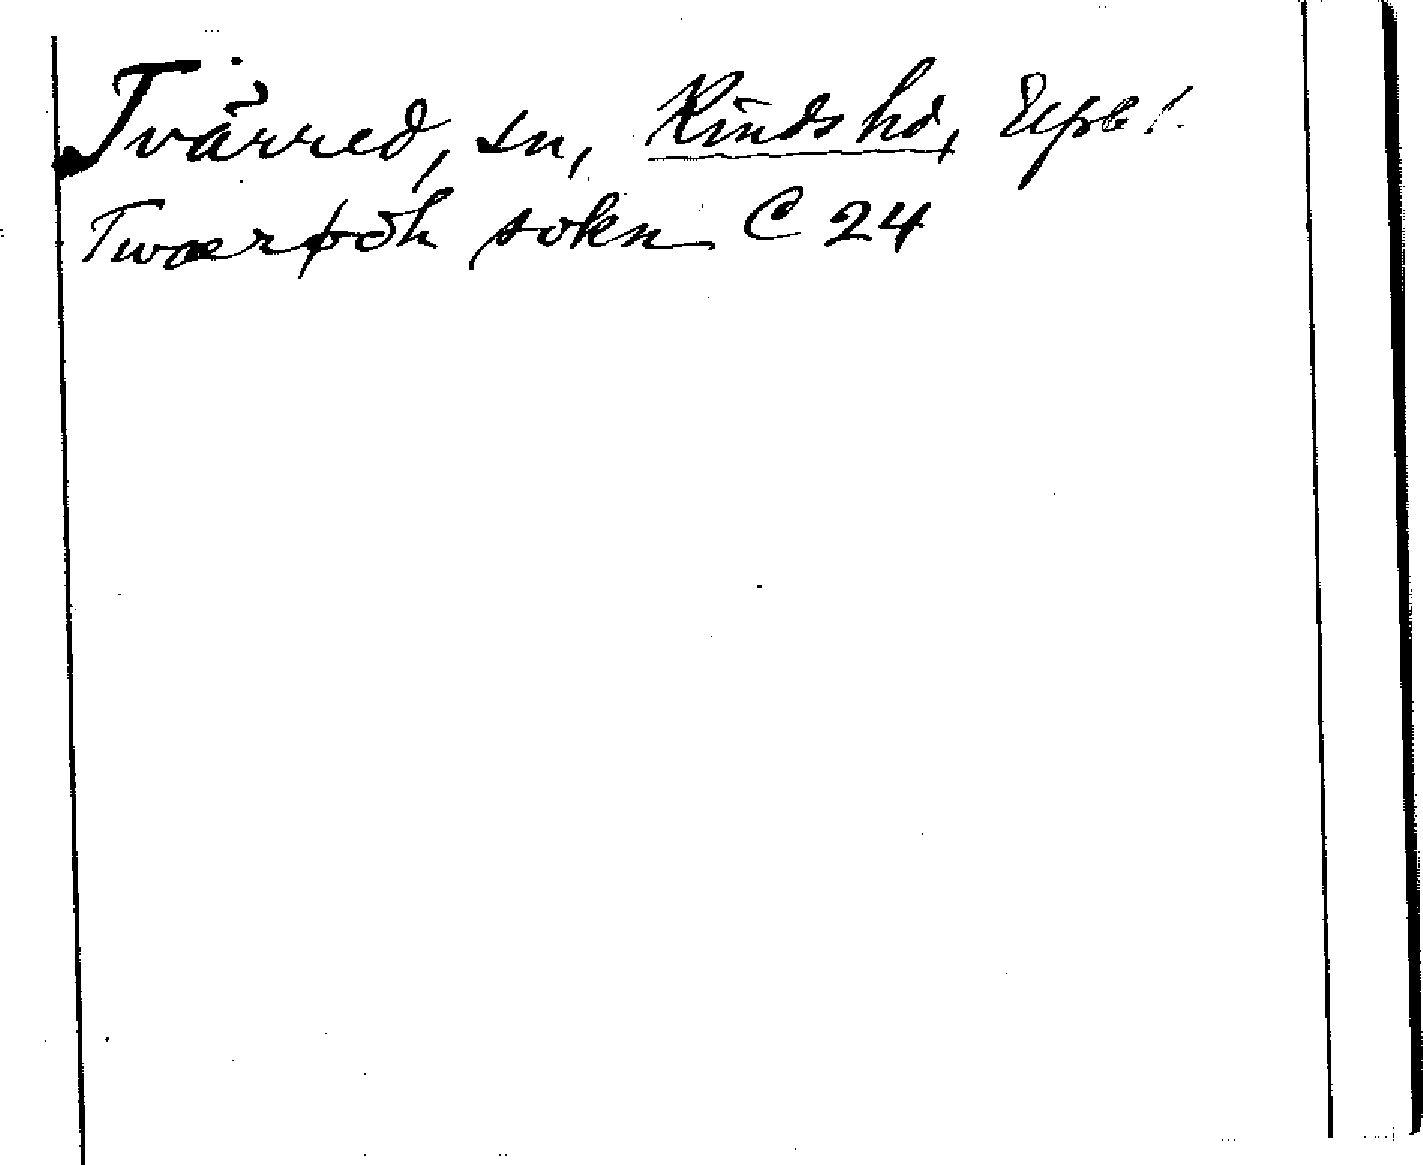 Tvärred, sn, Kinds hd, Älvsb l.
Twærþöh sokn C 24